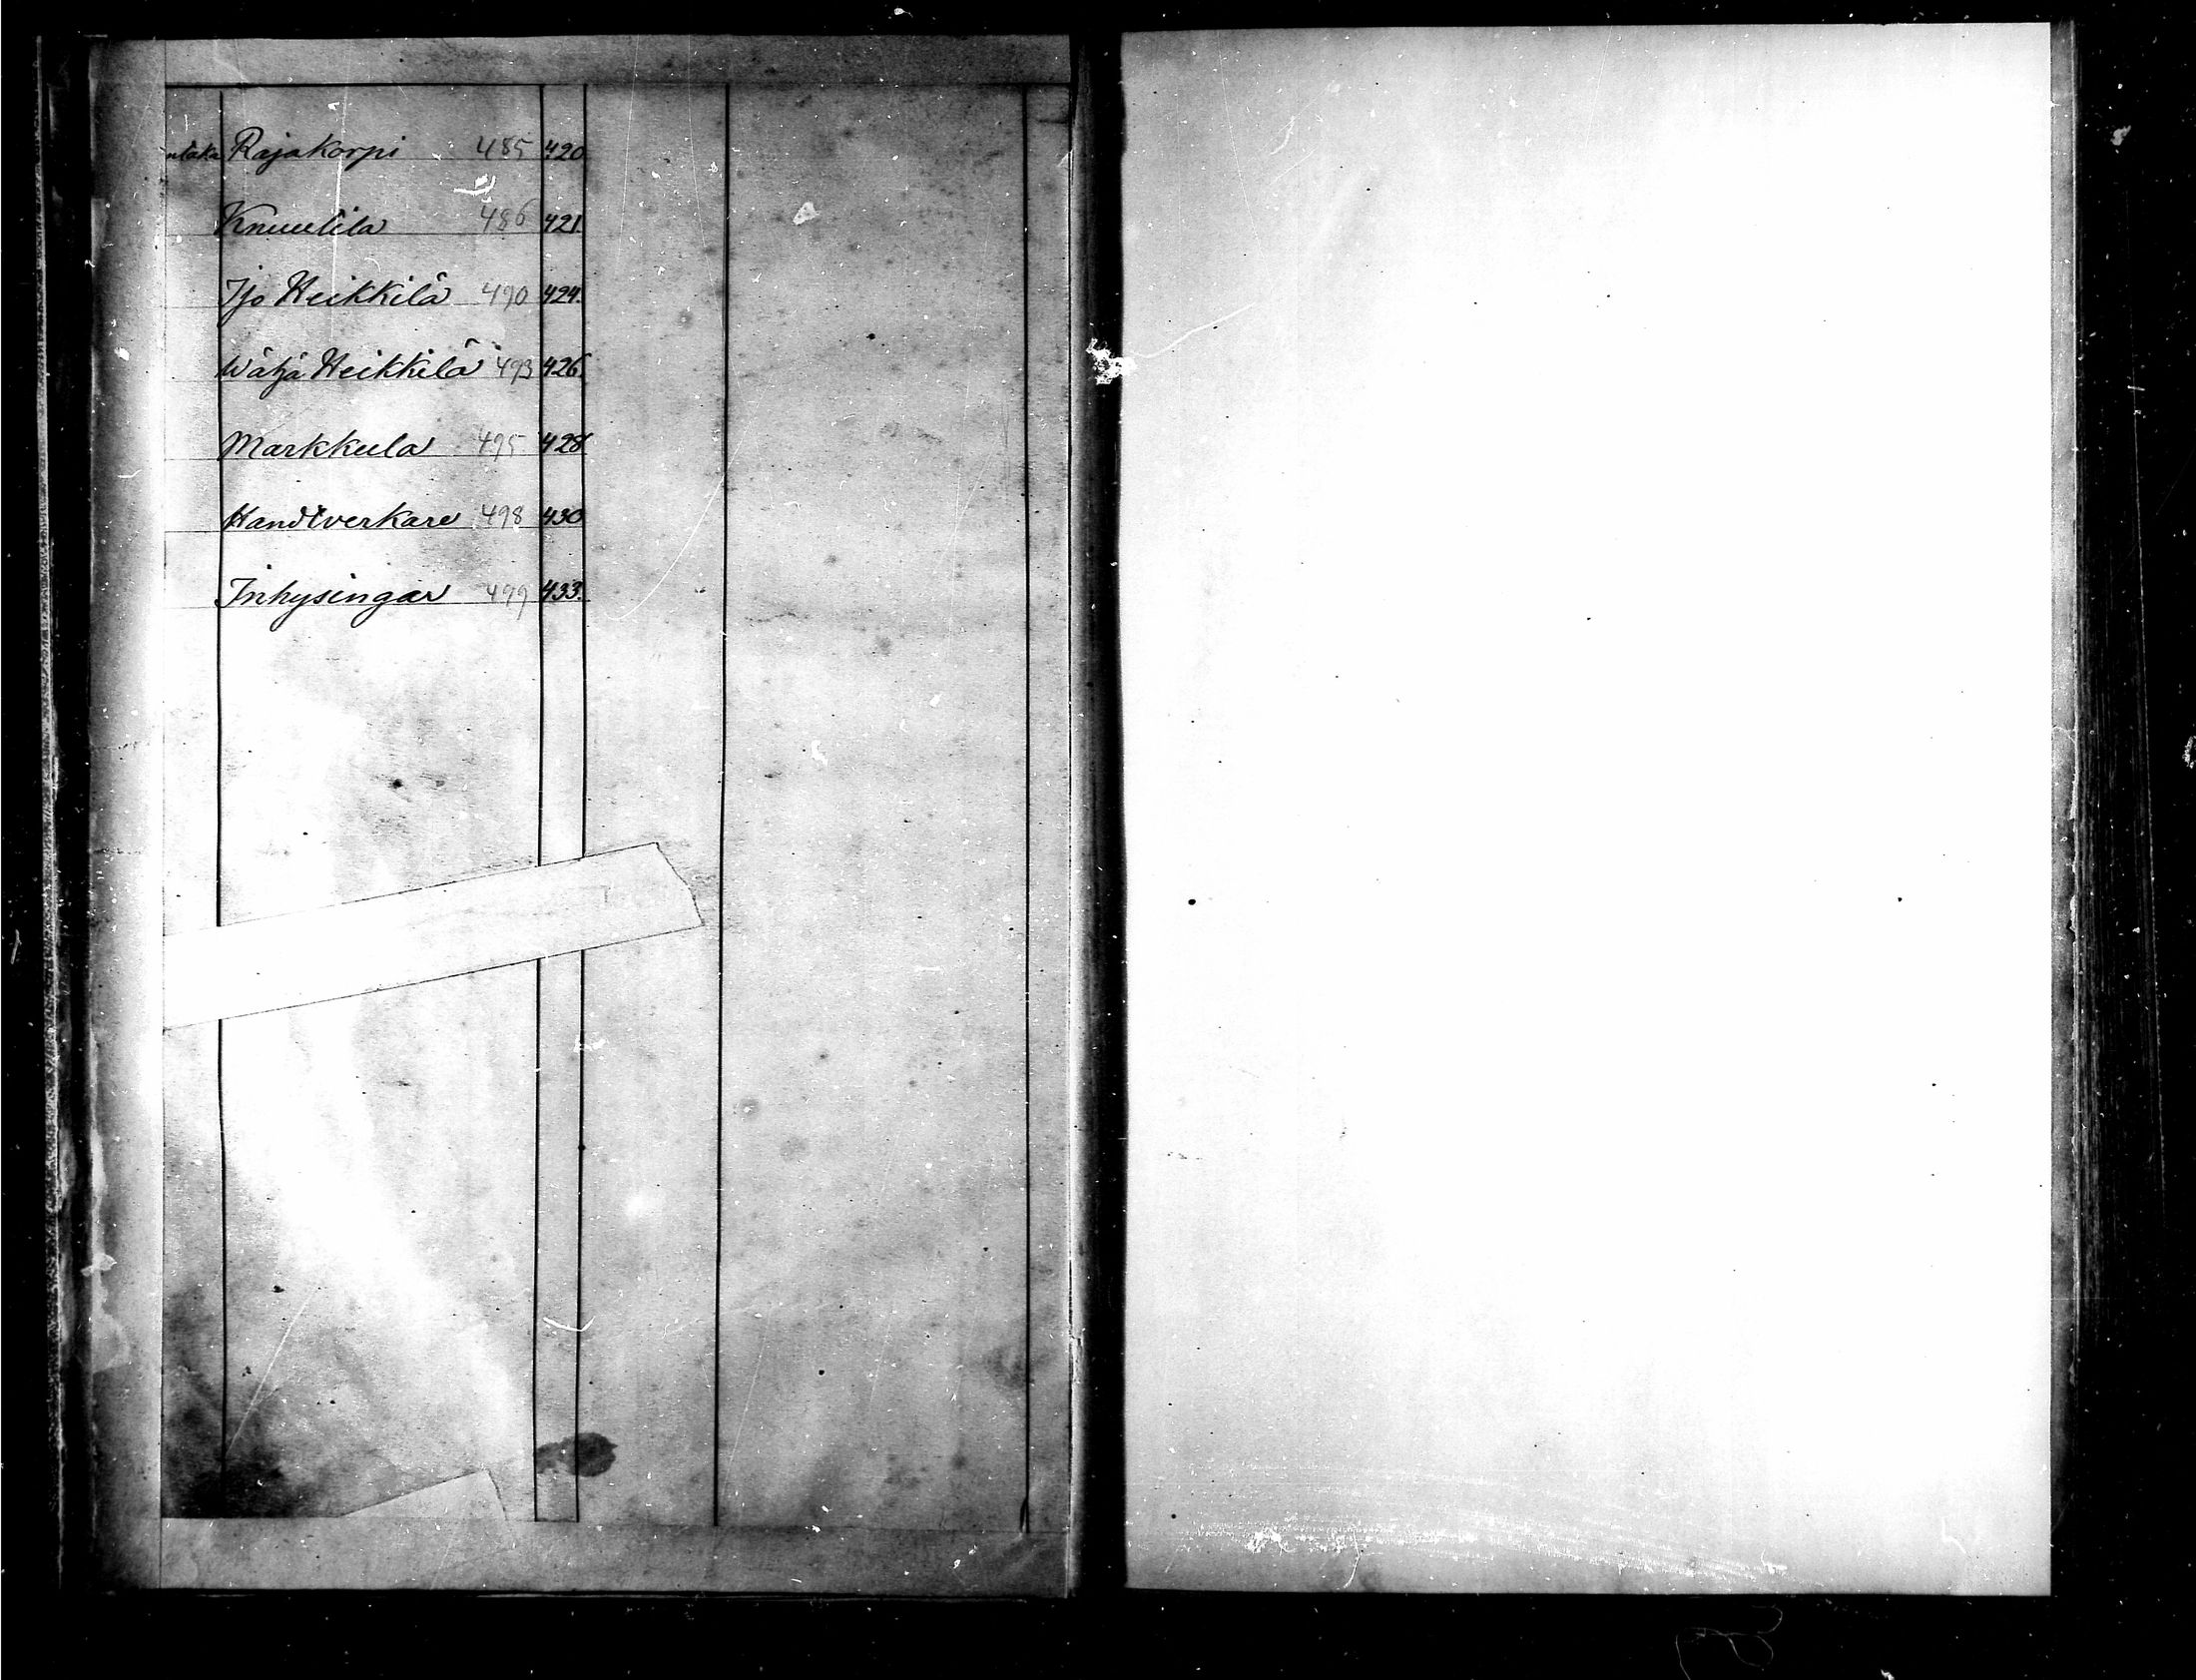 ntaka Rajakorpi 485 420
Knuutila 486 421.
Iso Heikkilä 490 424.
Wähä Heikkilä 493 426.
Markkula 495 428
Handtverkare 498 430
Inhysingar 499 433.